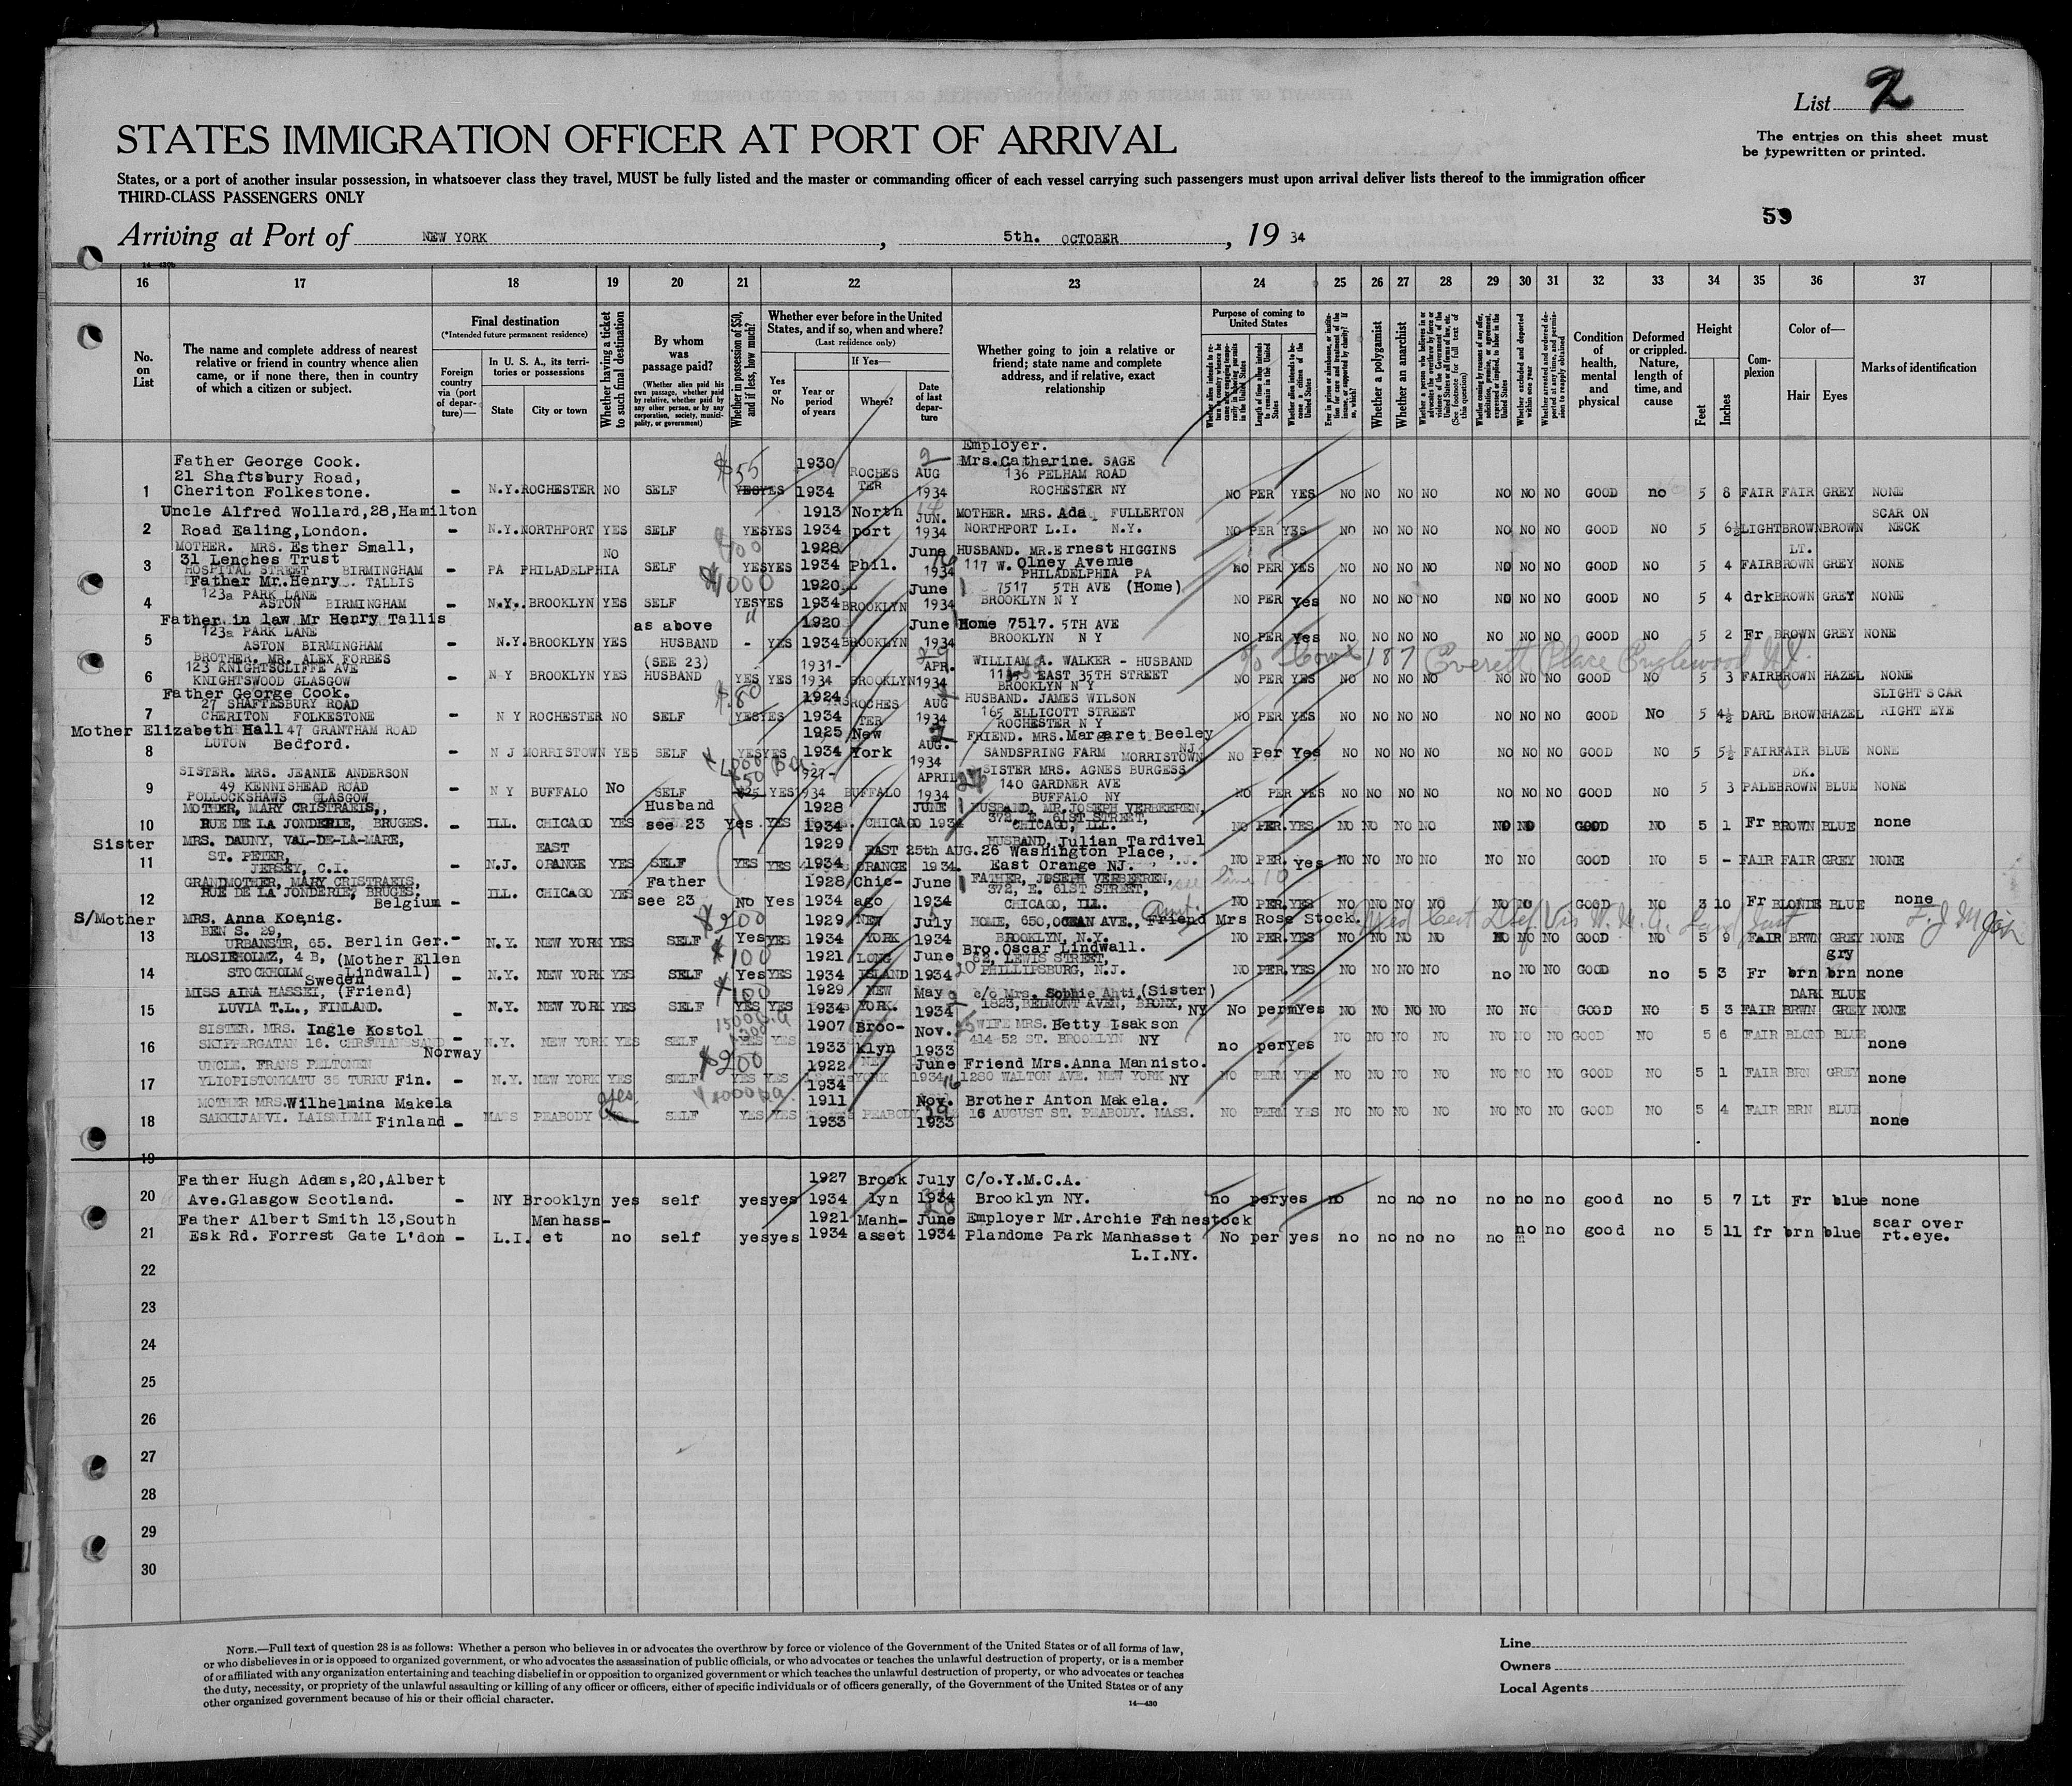 List 2
STATES IMMIGRATION OFFICER AT PORT OF ARRIVAL
The entries on this sheet must
be typewritten or printed.
States, or a port of another insular possession, in whatsoever class they travel, MUST be fully listed and the master or commanding officer of each vessel carrying such passengers must upon arrival deliver lists thereof to the immigration officer
THIRD-CLASS PASSENGERS ONLY
59
Arriving at Port of NEW YORK, 5th. OCTOBER, 19 34
16 17 18 19 20 21 22 23 24 25 26 27 28 29 30 31 32 33 34 35 36 37
No. on List
The name and complete address of nearest relative or friend in country whence alien came, or if none there, then in country of which a citizen or subject.
Final destination
(*Intended future permanent residence)
Foreign country via (port of departure)—
In U. S. A., its territories or possessions
State
City or town
Whether having a ticket to such final destination
By whom was passage paid?
(Whether alien paid his own passage, whether paid by relative, whether paid by any other person, or by any corporation, society, municipality, or government)
Whether in possession of $50, and if less, how much?
Whether ever before in the United States, and if so, when and where?
(Last residence only)
Yes or No
If Yes—
Year or period of years
Where?
Date of last departure
Whether going to join a relative or friend; state name and complete address, and if relative, exact relationship
Purpose of coming to United States
Length of time alien intends to remain in the United States
Whether alien intends to become a citizen of the United States
Whether a polygamist
Whether an anarchist
Whether excluded and deported within one year
Condition of health, mental and physical
Deformed or crippled. Nature, length of time, and cause
Height
Feet
Inches
Complexion
Color of—
Hair
Eyes
Marks of identification
Employer.
Father George Cook. $55 1930 ROCHES AUG Mrs. Catherine SAGE
21 Shaftsbury Road, TER 136 PELHAM ROAD
1 Cheriton Folkestone. - N.Y. ROCHESTER NO SELF YES YES 1934 1934 ROCHESTER NY NO PER YES NO NO NO NO NO NO NO GOOD no 5 8 FAIR FAIR GREY NONE
Uncle Alfred Wollard, 28, Hamilton 1913 North JUN. MOTHER. MRS. Ada FULLERTON SCAR ON
2 Road Ealing, London. - N.Y. NORTHPORT YES SELF YES YES 1934 port 1934 NORTHPORT L.I. N.Y. NO PER YES NO NO NO NO NO NO NO GOOD NO 5 6½ LIGHT BROWN BROWN NECK
MOTHER. MRS. Esther Small, NO 1928 June HUSBAND. MR. Ernest HIGGINS LT.
31 Lenches Trust 117 W. Olney Avenue
3 HOSPITAL STREET BIRMINGHAM - PA PHILADELPHIA SELF YES YES 1934 Phil. 1934 PHILADELPHIA PA NO PER YES NO NO NO NO NO NO NO GOOD NO 5 4 FAIR BROWN GREY NONE
Father Mr. Henry TALLIS $1000 1920 June 7517 5TH AVE (Home)
123a PARK LANE
4 ASTON BIRMINGHAM - N.Y. BROOKLYN YES SELF YES YES 1934 BROOKLYN 1934 BROOKLYN N Y NO PER Yes NO NO NO NO NO NO NO GOOD NO 5 4 drk BROWN GREY NONE
Father in law Mr Henry Tallis as above " 1920 June Home 7517. 5TH AVE
123a PARK LANE
5 ASTON BIRMINGHAM - N.Y. BROOKLYN YES HUSBAND - YES 1934 BROOKLYN 1934 BROOKLYN N Y NO PER Yes NO NO NO NO NO NO NO GOOD NO 5 2 Fr BROWN GREY NONE
BROTHER. MR. ALEX FORBES (SEE 23) 1931- APR. WILLIAM A. WALKER - HUSBAND 187 Everett Place Englewood N.J.
123 KNIGHTSCLIFFE AVE EAST 35TH STREET
6 KNIGHTSWOOD GLASGOW - N Y BROOKLYN YES HUSBAND YES YES 1934 BROOKLYN 1934 BROOKLYN N Y NO PER YES NO NO NO NO NO NO NO GOOD NO 5 3 FAIR BROWN HAZEL NONE
Father George Cook. $80 1924 ROCHES AUG HUSBAND. JAMES WILSON SLIGHT SCAR
27 SHAFTESBURY ROAD 165 ELLICOTT STREET
7 CHERITON FOLKESTONE - N Y ROCHESTER NO SELF YES YES 1934 TER 1934 ROCHESTER N Y NO PER YES NO NO NO NO NO NO NO GOOD No 5 4½ DARL BROWN HAZEL RIGHT EYE
Mother Elizabeth Hall 47 GRANTHAM ROAD 1925 New AUG. FRIEND. MRS. Margaret Beeley
8 LUTON Bedford. - N J MORRISTOWN YES SELF YES YES 1934 York 1934 SANDSPRING FARM MORRISTOWN NJ NO Per Yes NO NO NO NO NO NO NO GOOD NO 5 5½ FAIR FAIR BLUE NONE
SISTER. MRS. JEANIE ANDERSON 1927- APRIL SISTER MRS. AGNES BURGESS DK.
49 KENNISHEAD ROAD $50 140 GARDNER AVE
9 POLLOCKSHAWS GLASGOW - N Y BUFFALO No SELF YES 1934 BUFFALO 1934 BUFFALO NY NO PER YES NO NO NO NO NO NO NO GOOD NO 5 3 PALE BROWN BLUE NONE
MOTHER, MARY CRISTRAEIS, Husband 1928 JUNE HUSBAND, MR. JOSEPH VERBEEREN,
372, E. 61ST STREET,
10 RUE DE LA JONDERIE, BRUGES. - ILL. CHICAGO YES see 23 Yes YES 1934 CHICAGO 1934 CHICAGO, ILL. NO PER. YES. NO NO NO NO NO NO GOOD NO 5 1 Fr BROWN BLUE none
Sister MRS. DAUNY, VAL-DE-LA-MARE, EAST 1929 EAST 25th AUG. HUSBAND, Julian Tardivel
ST. PETER, 26 Washington Place,
11 JERSEY, C.I. - N.J. ORANGE YES SELF YES YES 1934 ORANGE 1934 East Orange NJ. NO PER. Yes NO NO NO NO NO NO GOOD NO 5 - FAIR FAIR GREY NONE
GRANDMOTHER, MARY CRISTRAEIS, Father 1928 Chic- June FATHER, JOSEPH VERBEEREN, see line 10
RUE DE LA JONDERIE, BRUGES. 372, E. 61ST STREET,
12 Belgium - ILL. CHICAGO YES see 23 No Yes 1934 ago 1934 CHICAGO, ILL. NO PER. YES NO NO NO NO NO NO GOOD NO 3 10 Fr BLONDE BLUE none
S/Mother MRS. Anna Koenig. $200 1929 NEW July HOME, 650, OCEAN AVE., Friend Mrs Rose Stock.
BEN S. 29,
13 URBANSTR, 65. Berlin Ger. - N.Y. NEW YORK YES SELF Yes YES 1934 YORK 1934 BROOKLYN, N.Y. NO PER. YES NO NO NO NO NO NO NO GOOD NO 5 9 FAIR BRWN GREY NONE
BLOSIEHOLMZ, 4 B, (Mother Ellen $100 1921 LONG June Bro. Oscar Lindwall. gry
STOCKHOLM Lindwall) 82, LEWIS STREET,
14 Sweden - N.Y. NEW YORK YES SELF Yes YES 1934 ISLAND 1934 PHILLIPSBURG, N.J. NO PER. YES NO NO NO NO no NO NO GOOD no 5 3 Fr brn brn none
MISS AINA HASSEI, (Friend) $100 1929 NEW May c/o Mrs. Sophie Ahti. (Sister) DARK BLUE
15 LUVIA T.L., FINLAND. - N.Y. NEW YORK YES SELF YES YES 1934 YORK. 1934 1823, BELMONT AVEN, BRONX, NY No perm Yes NO NO NO NO NO NO GOOD NO 5 3 FAIR BRWN GREY NONE
SISTER. MRS. Ingle Kostol 1907 Broo- Nov. 25 WIFE MRS. Betty Isakson
16 SKIPPERGATAN 16. CHRSTIANSSAND Norway N.Y. NEW YORK YES SELF YES YES 1933 klyn 1933 414-52 ST. BROOKLYN NY no per Yes NO NO NO NO NO NO NO GOOD NO 5 6 FAIR BLOND BLUE none
UNCLE. FRANS PELTONEN $200 1922 NEW June Friend Mrs. Anna Mannisto.
17 YLIOPISTONKATU 35 TURKU Fin. - N.Y. NEW YORK YES SELF YES YES 1934 YORK 1934 16 1280 WALTON AVE. NEW YORK NY NO PERM YES NO NO NO NO NO NO NO GOOD NO 5 1 FAIR BRN GREY none
MOTHER MRS. Wilhelmina Makela yes 1911 Nov. Brother Anton Makela.
18 SAKKIJARVI. LAISNIEMI Finland - MASS PEABODY SELF YES YES 1933 PEABODY 1933 16 AUGUST ST. PEABODY. MASS. NO PERM YES NO NO NO NO NO NO NO GOOD NO 5 4 FAIR BRN BLUE none
19
Father Hugh Adams, 20, Albert 1927 Brook July C/o. Y.M.C.A.
20 Ave. Glasgow Scotland. - NY Brooklyn yes self yes yes 1934 lyn 1934 Brooklyn NY. no per yes no no no no no no no good no 5 7 Lt Fr blue none
Father Albert Smith 13, South Manhass- 1921 Manh- June Employer Mr. Archie Fahnestock scar over
21 Esk Rd. Forrest Gate L'don - L.I. et no self yes yes 1934 asset 1934 Plandome Park Manhasset No per yes no no no no no no no good no 5 11 fr brn blue rt. eye.
L.I.NY.
22
23
24
25
26
27
28
29
30
NOTE.—Full text of question 28 is as follows: Whether a person who believes in or advocates the overthrow by force or violence of the Government of the United States or of all forms of law,
or who disbelieves in or is opposed to organized government, or who advocates the assassination of public officials, or who advocates or teaches the unlawful destruction of property, or is a member
of or affiliated with any organization entertaining and teaching disbelief in or opposition to organized government or which teaches the unlawful destruction of property, or who advocates or teaches
the duty, necessity, or propriety of the unlawful assaulting or killing of any officer or officers, either of specific individuals or of officers generally, of the Government of the United States or of any
other organized government because of his or their official character.
14—430
Line
Owners
Local Agents